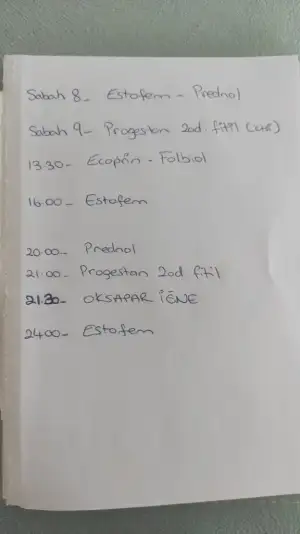 Sabah 8- Estofem - Prednol
Sabah 9- Progestan 2ad fitil
13.30- Ecoprin - Folbiol
16.00- Estofem
20.00- Prednol
21.00- Progestan 2ad fitil
21.30- OKSAPAR İĞNE
24.00- Estofem